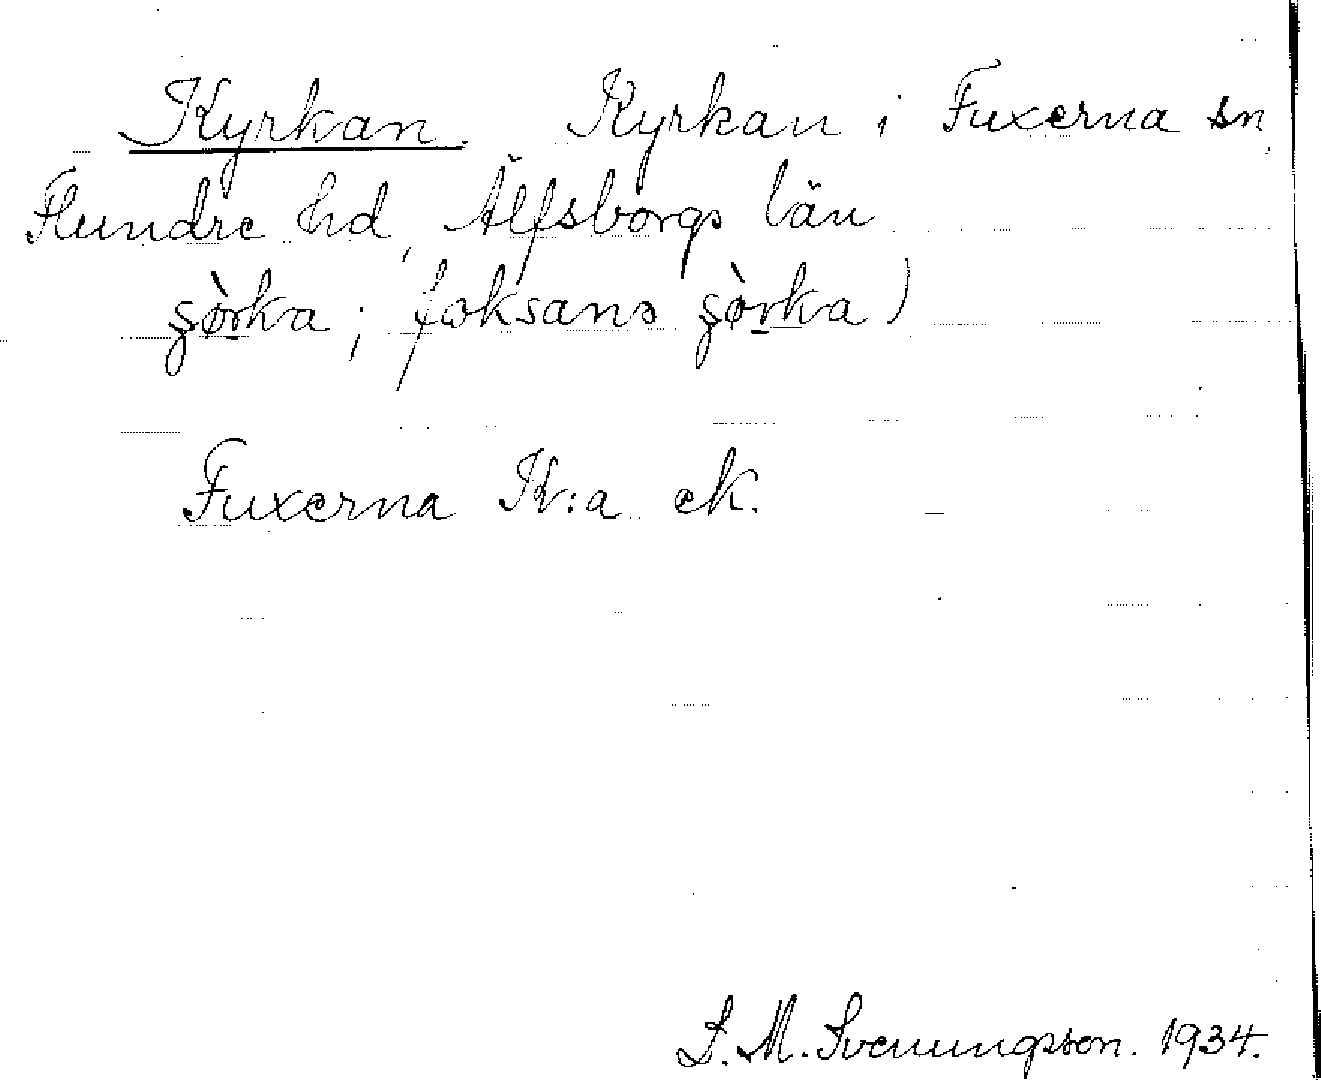 Kyrkan. Kyrkan i Fuxerna sn,
Flundre hd, Älfsborgs län
şòrka; foksans şòrka)
Fuxerna K:a ek.
S. M. Svenungsson. 1934.